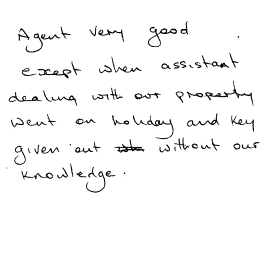 Agent very good
except when assistant
dealing with our property
went on holiday and key
given out without our
knowledge.